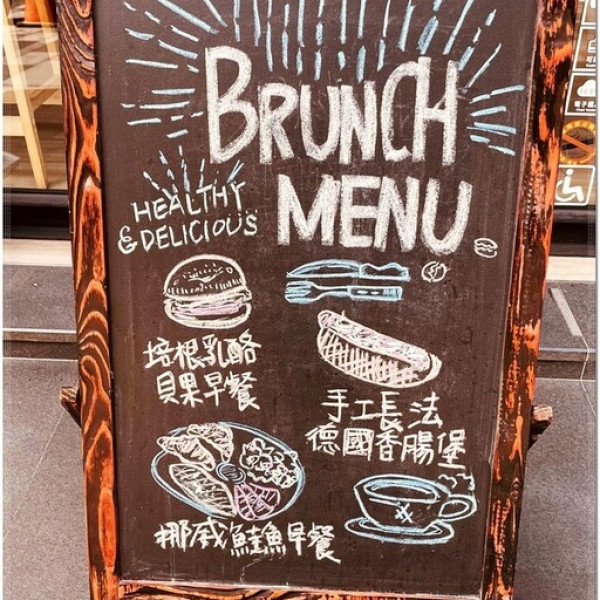 BRUNCH
MENU
HEALTHY
& DELICIOUS
培根乳酪
貝果早餐
手工長法
德國香腸堡
挪威鮭魚早餐